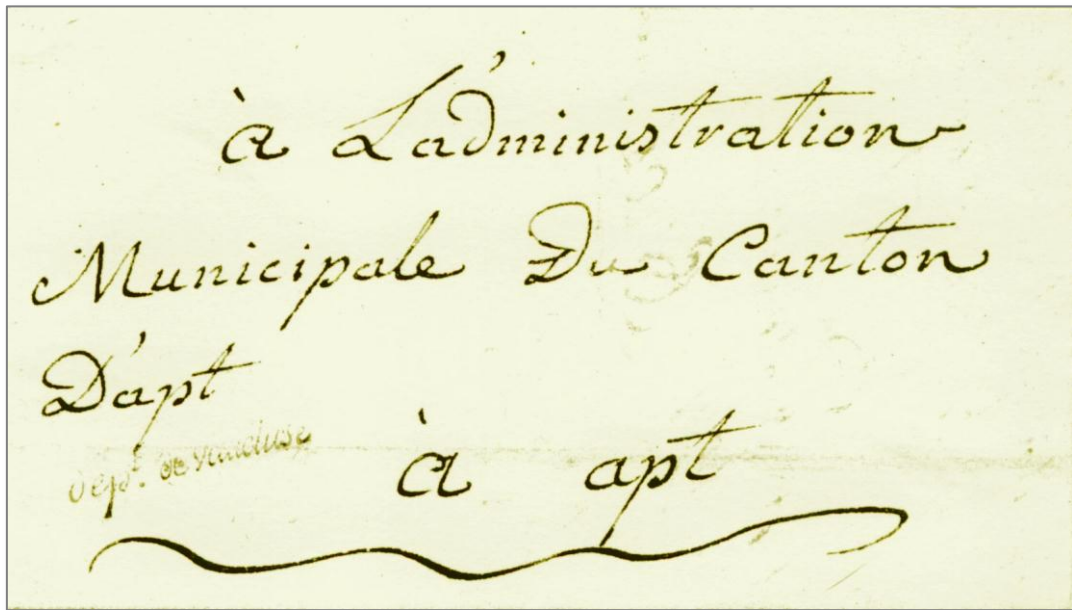 à L'administration
Municipale Du Canton
D'apt
dept. de vaucluse
à apt